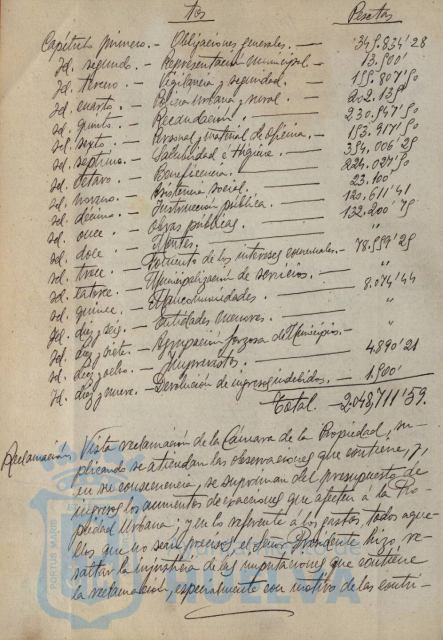 Pesetas
Capítulo primero. - Obligaciones generales. - 345.834'28
Id. segundo. - Representación municipal. - 13.500
Id. tercero. - Vigilancia y seguridad. - 155.807'50
Id. cuarto. - Policía Urbana y rural. - 202.135
Id. quinto. - Recaudación. - 230.547'50
Id. sexto. - Personal y material de oficina. - 153.917'50
Id. séptimo. - Salubridad é Higiene. - 394.006'25
Id. octavo. - Beneficencia. - 224.027'50
Id. noveno. - Asistencia social. - 23.100
Id. décimo. - Instrucción pública. - 120.611'41
Id. once. - Obras públicas. - 132.200'75
Id. doce. - Montes. - "
Id. trece. - Fomento de los intereses comunales. - 78.559'25
Id. catorce. - Municipalización de servicios. - "
Id. quince. - Mancomunidades. - 8.074'44
Id. diez y seis. - Entidades menores. - "
Id. diez y siete. - Agrupación forzosa de Municipios. - "
Id. diez y ocho. - Imprevistos. - 4.890'21
Id. diez y nueve. - Devolución de ingresos indebidos. - 1.500'
Total. - 2.048,711'59.
Reclamación. Vista reclamación de la Cámara de la Propiedad, su-
plicando se atiendan las observaciones que contiene, y,
en su consecuencia, se supriman del presupuesto de
ingresos los aumentos de exacciones que afecten a la Pro-
piedad Urbana; y en lo referente á los gastos, todos aque-
llos que no sean precisos, el Señor Presidente hizo re-
saltar la injusticia de las imputaciones que contiene
la reclamación, especialmente con motivo de las contri-
PORTUS MARIS
HUELVA